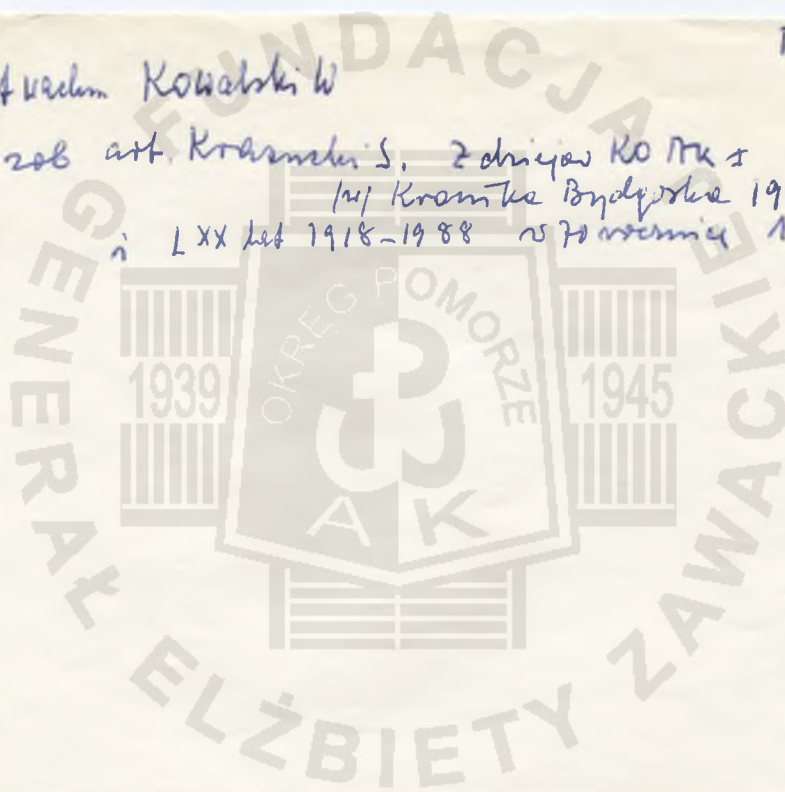 Kowalski W
zob art. Krasucki S. Z dziejów KO AK
/w/ Kronika Bydgoska 19
i LXX lat 1918-1988 w 70 rocznicę
FUNDACJA
GENERAŁ ELŻBIETY ZAWACKIEJ
OKRĘG POMORZE
1939
1945
AK